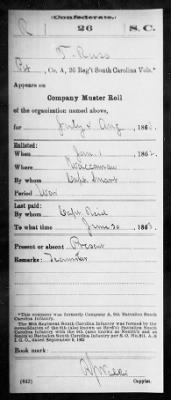 (Confederate.)
R 26 S.C.
T. Russ
Pvt, Co. A, 26 Reg't South Carolina Vols.*
Appears on
Company Muster Roll
of the organization named above,
for July & Aug, 186
Enlisted:
When Jan 1, 186
Where Waccamaw
By whom Capt. Smart
Period War
Last paid:
By whom Capt. Reid
To what time June 30, 186
Present or absent Present
Remarks: Teamster
*This company was formerly Company A, 9th Battalion South Carolina Infantry.
The 26th Regiment South Carolina Infantry was formed by the consolidation of the 6th (also known as Byrd's) Battalion South Carolina Infantry with the 9th (also known as Smith's) Battalion South Carolina Infantry by S. O. No.
Book mark:
(642) Copyist.